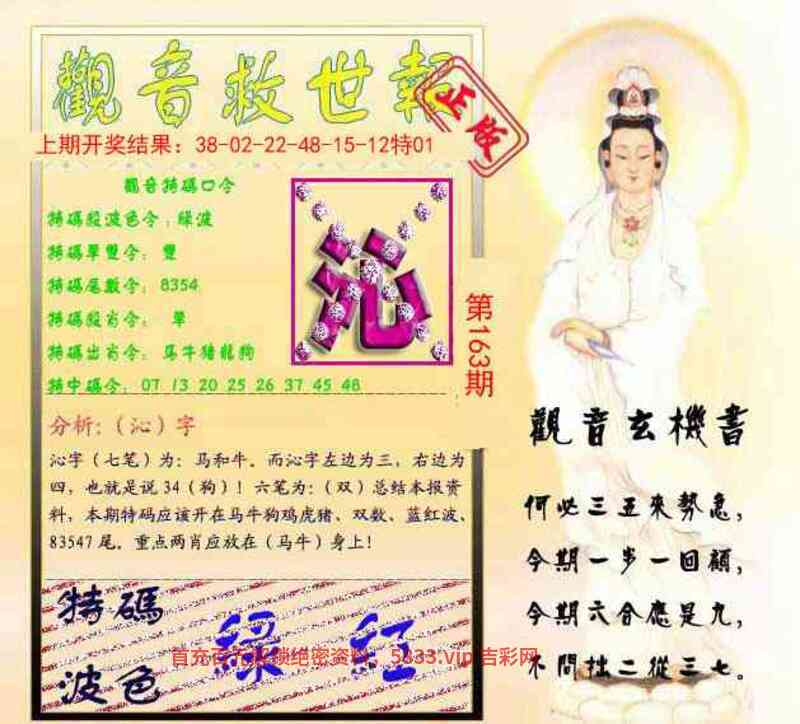 觀音救世報
正版
上期开奖结果：38-02-22-48-15-12特01
觀音特碼口令
特碼殺波色令：綠波
特碼單雙令：雙
特碼尾數令：8354
特碼殺肖令：單
特碼出肖令：马牛猪龍狗
特中碼令：07 13 20 25 26 37 45 48
沁
第163期
分析:（沁）字
沁字（七笔）为：马和牛．而沁字左边为三，右边为
四，也就是说34（狗）！六笔为：（双）总结本报资
料，本期特码应该开在马牛狗鸡虎猪、双数、蓝红波、
83547尾．重点两肖应放在（马牛）身上！
特碼
波色
綠 紅
首充百 绝密资料 5333.vip 吉彩网
觀音玄機書
何必三五來勢急，
今期一步一回顧，
今期六合應是九，
不問拙二從三七。